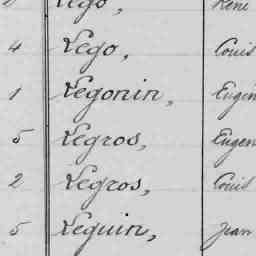 Lego, René
4 Lego, Louis
1 Legonin, Eugèn
5 Legros, Eugen
2 Legros, Louis
5 Leguin, Jean